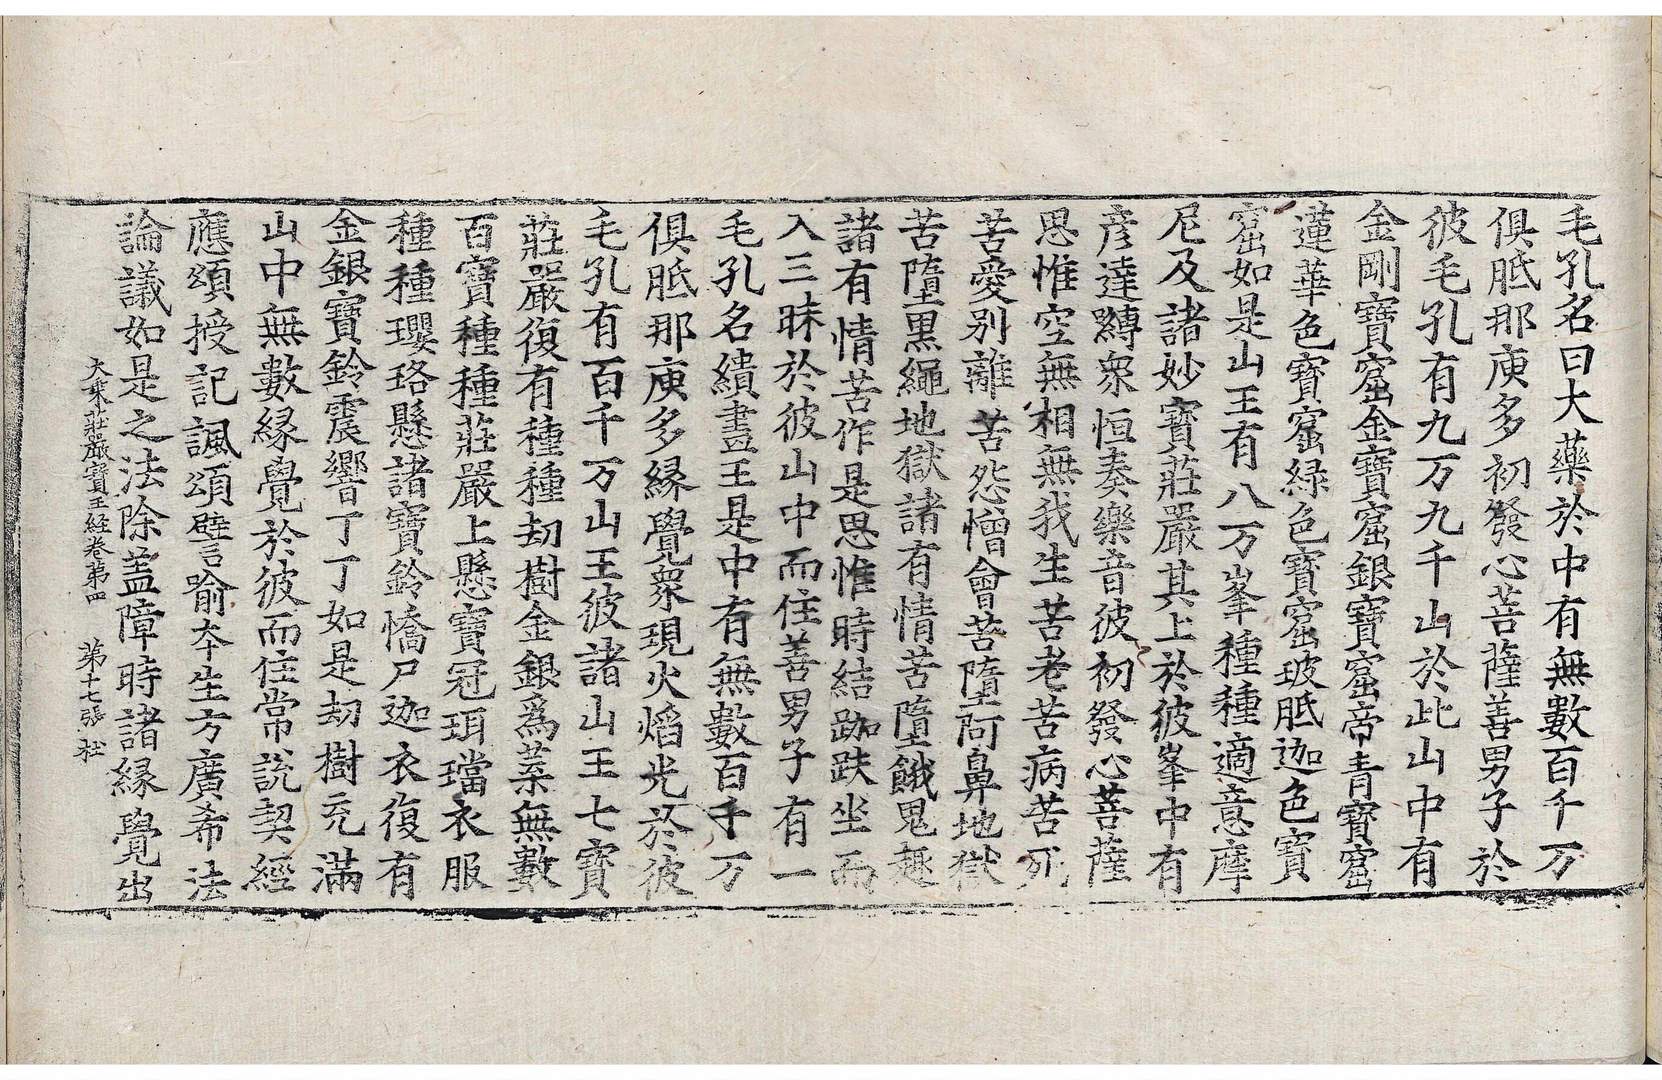 毛孔名曰大藥於中有無數百千万
俱胝那庾多初發心菩薩善男子於
彼毛孔有九万九千山於此山中有
金剛寶窟金寶窟銀寶窟帝青寶窟
蓮華色寶窟緑色寶窟玻胝迦色寶
窟如是山王有八万峯種種適意摩
尼及諸妙寶莊嚴其上於彼峯中有
彦達縳衆恒奏樂音彼初發心菩薩
思惟空無相無我生苦老苦病苦死
苦愛別離苦怨憎會苦墮阿鼻地獄
苦墮黒繩地獄諸有情苦墮餓鬼趣
諸有情苦作是思惟時結跏趺坐而
入三昧於彼山中而住善男子有一
毛孔名繢畫王是中有無數百千万
俱胝那庾多縁覺衆現火焰光於彼
毛孔有百千万山王彼諸山王七寶
莊嚴復有種種劫樹金銀爲葉無數
百寶種種莊嚴上懸寶冠珥璫衣服
種種瓔珞懸諸寶鈴憍尸迦衣復有
金銀寶鈴震響丁丁如是劫樹充滿
山中無數縁覺於彼而住常說契經
應頌授記諷頌譬喻夲生方廣希法
論議如是之法除盖障時諸縁覺出
大乗莊嚴寶王經卷第四 第十七張